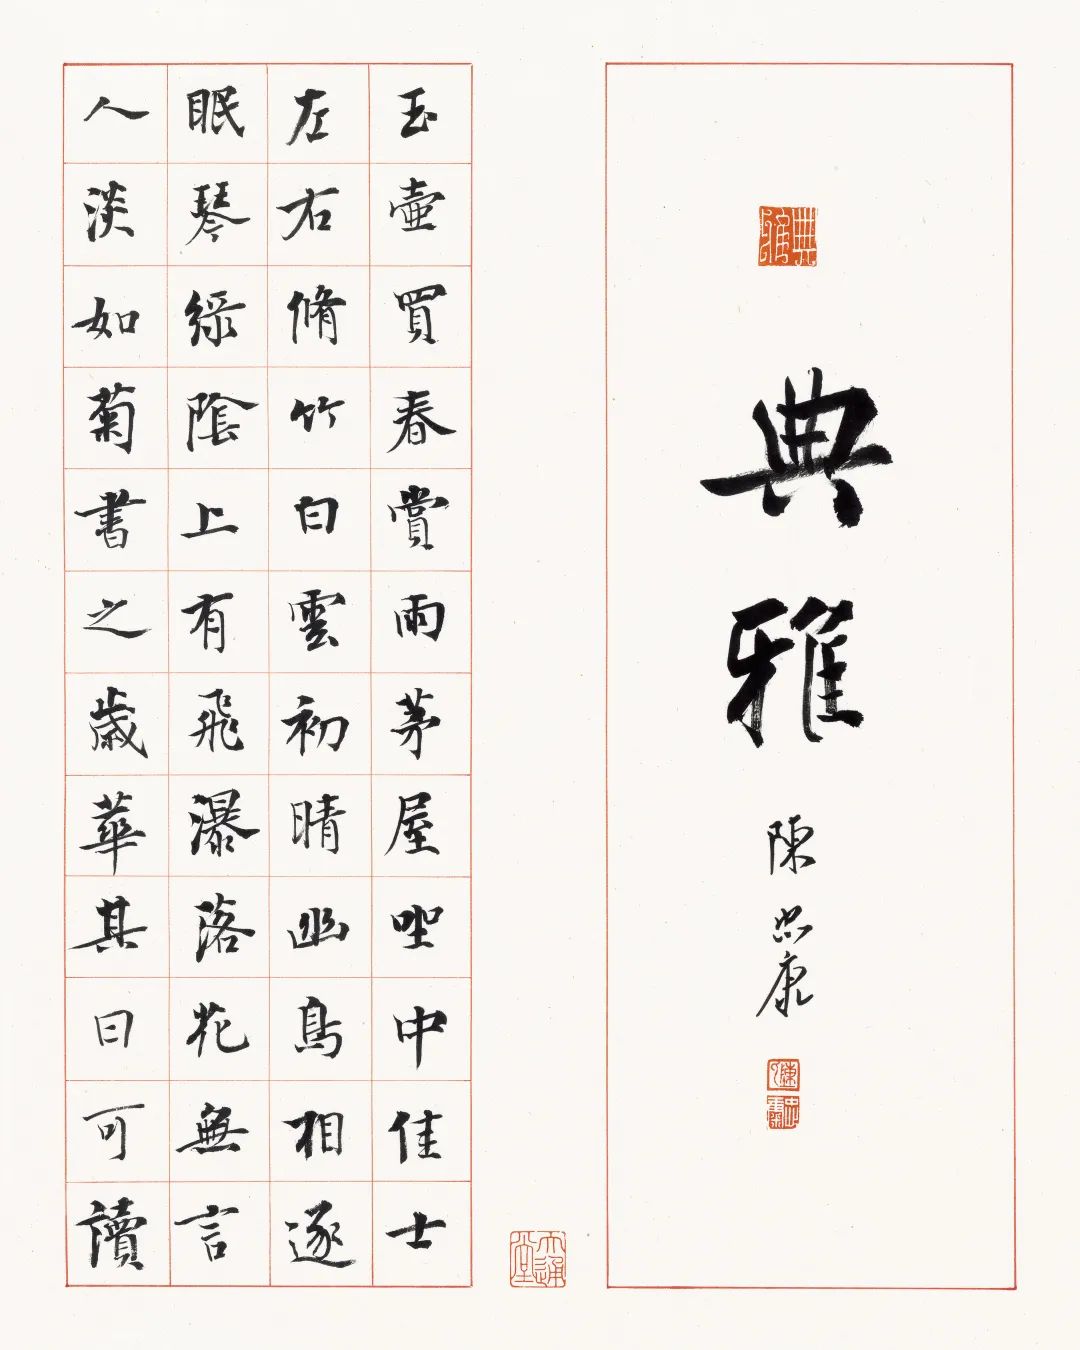 典雅
陳忠康
玉壺買春賞雨茅屋坐中佳士
左右脩竹白雲初晴幽鳥相逐
眠琴綠陰上有飛瀑落花無言
人淡如菊書之歲華其曰可讀
典雅
陳忠康